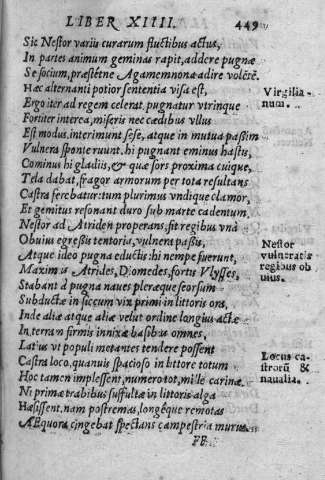 LIBER XIIII. 449
Sic Nestor variis curarum fluctibus actus,
In partes animum geminas rapit, addere pugnæ
Se socium, præstétne Agamemnona adire volēté.
Hæc alternanti potior sententia visa est,
Virgilia-
num.
Ergo iter ad regem celerat, pugnatur vtrinque
Fortiter interea, miseris nec cædibus vllus
Est modus, interimunt sese, atque in mutua passim
Vulnera sponte ruunt. hi pugnant eminus hastis,
Cominus hi gladiis, & quæ sors proxima cuique,
Tela dabat, fragor armorum per tota resultans
Castra ferebatur: tum plurimus vndique clamor,
Et gemitus resonant duro sub marte cadentum.
Nestor ad Atriden properans, fit regibus vnà
Obuius egressis tentoria, vulnere passis,
Nestor
vulneratis
regibus ob
uius.
Atque ideo pugna eductis: hi nempe fuerunt,
Maximus Atrides, Diomedes, fortis Vlysses,
Stabant à pugna naues pleræque seorsum
Subductæ in siccum vix primi in littoris ora,
Inde aliæ atque aliæ velut ordine longius actæ
In terram firmis innixæ basibus omnes,
Latius vt populi metantes tendere possent
Locus ca-
strorū &
naualia.
Castra loco, quamuis spacioso in littore totum
Hoc tamen implessent, numero tot, mille carinæ.
Ni primæ trabibus suffultæ in littoris alga
Hæsissent. nam postremas, longéque remotas
AEquora, cingebat spectans campestria murus.
FF